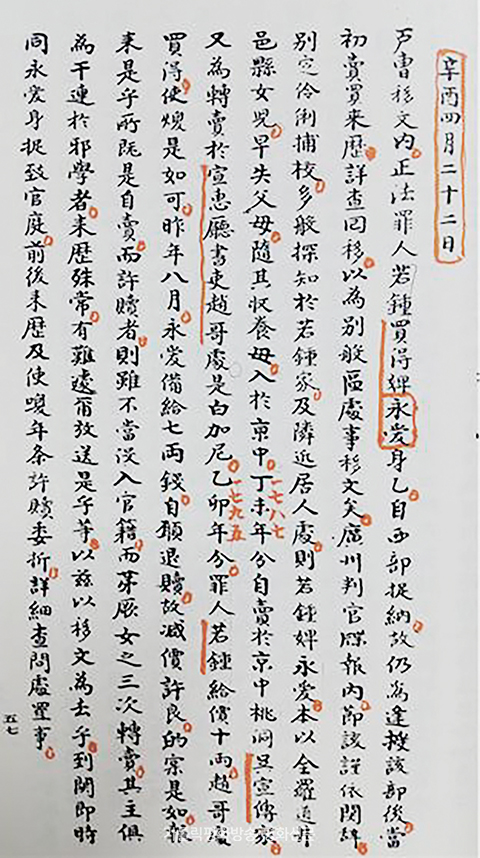 辛酉四月二十二日
戶曹移文內正法罪人若鍾買得婢永愛身乙自西部捉納故仍為逢授該部後當
初賣買來歷詳查回移以為別般區處事移文矣廣州判官牒報內節該謹依關辭
別定伶俐捕校多般探知於若鍾家及隣近居人處則若鍾婢永愛本以全羅道井
邑縣女兒早失父母隨其收養母入於京中丁未年分自賣於京中桃洞吳宣傳家
一七八七
又為轉賣於宣惠廳書吏趙哥處是白加尼乙卯年分罪人若鍾給價十兩趙哥處
一七九五
買得使喚是如可昨年八月永愛備給七兩錢自願退贖故減價許良的實是如
來是乎所旣是自賣而許贖者則雖不當沒入官籍而第厥女之三次轉賣其主俱
為干連於邪學者來歷殊常有難遽爾放送是乎等以茲以移文為去乎到關卽時
同永愛身捉致官庭前後來歷及使喚年条許贖委折詳細查問處置事
五七